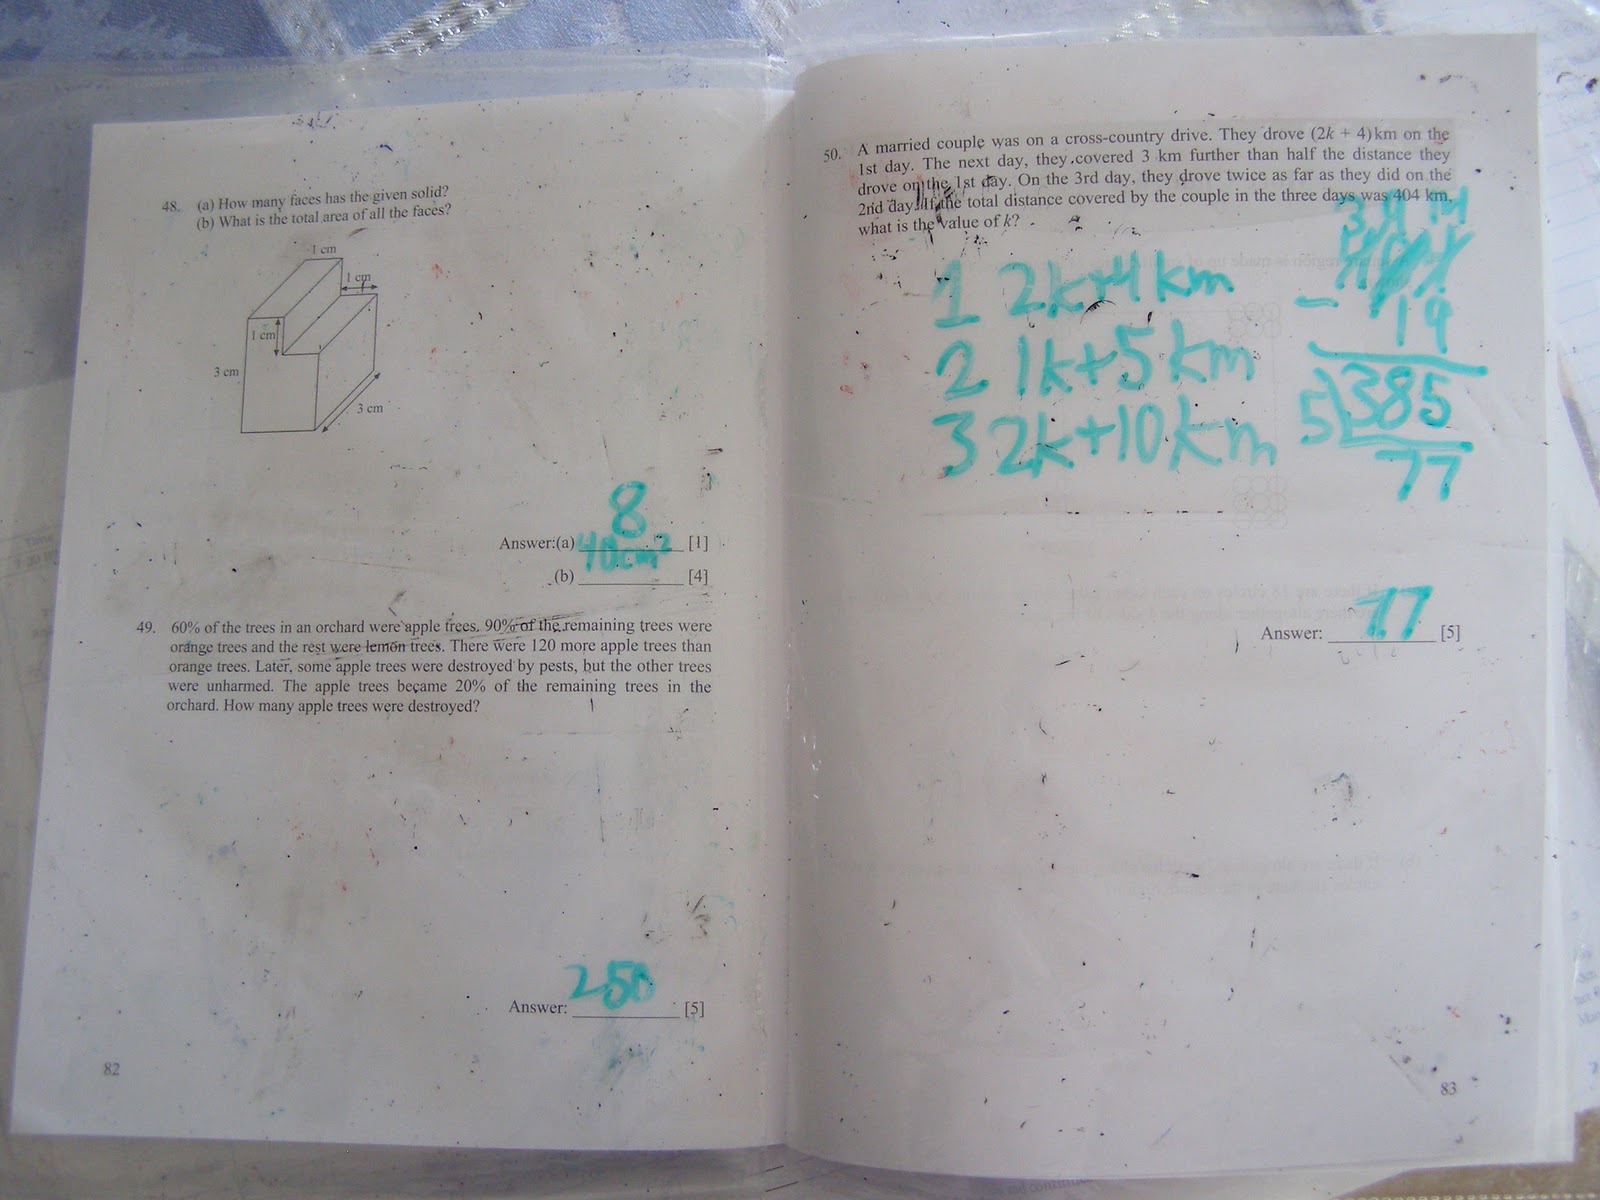 48. (a) How many faces has the given solid?
(b) What is the total area of all the faces?
1 cm
1 cm
1 cm
3 cm
3 cm
8
Answer:(a) ________ [1]
40cm²
(b) ________ [4]
49. 60% of the trees in an orchard were apple trees. 90% of the remaining trees were
orange trees and the rest were lemon trees. There were 120 more apple trees than
orange trees. Later, some apple trees were destroyed by pests, but the other trees
were unharmed. The apple trees became 20% of the remaining trees in the
orchard. How many apple trees were destroyed?
250
Answer: ________ [5]
82
50. A married couple was on a cross-country drive. They drove (2k + 4) km on the
1st day. The next day, they covered 3 km further than half the distance they
drove on the 1st day. On the 3rd day, they drove twice as far as they did on the
2nd day. If the total distance covered by the couple in the three days was 404 km,
what is the value of k?
1 2k+4km
2 1k+5km
3 2k+10km
- 19
5 385
77
77
Answer: ________ [5]
83